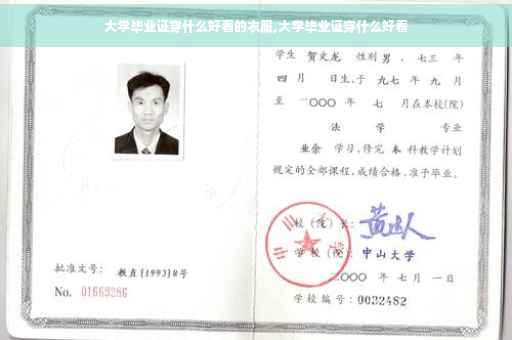 大学毕业证穿什么好看的衣服,大学毕业证穿什么好看
学生 贺文龙 性别 男 、七三 年
四 月 日生,于 九七 年 九 月
至 二〇〇〇 年 七 月在本校(院)
法 学 专业
业余 学习,修完 本 科教学计划
规定的全部课程,成绩合格,准予毕业。
校 (院) 长:
学 校 (院): 中山大学
二〇〇〇 年 七 月 一 日
学校编号: 0032482
批准文号: 教直(1993)8号
No. 01669286